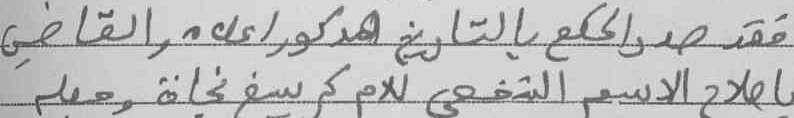 فقد صدر الحكم بالتاريخ المذكور اعلاه والقاضي
باصلاح الاسم الشخصي للام كم